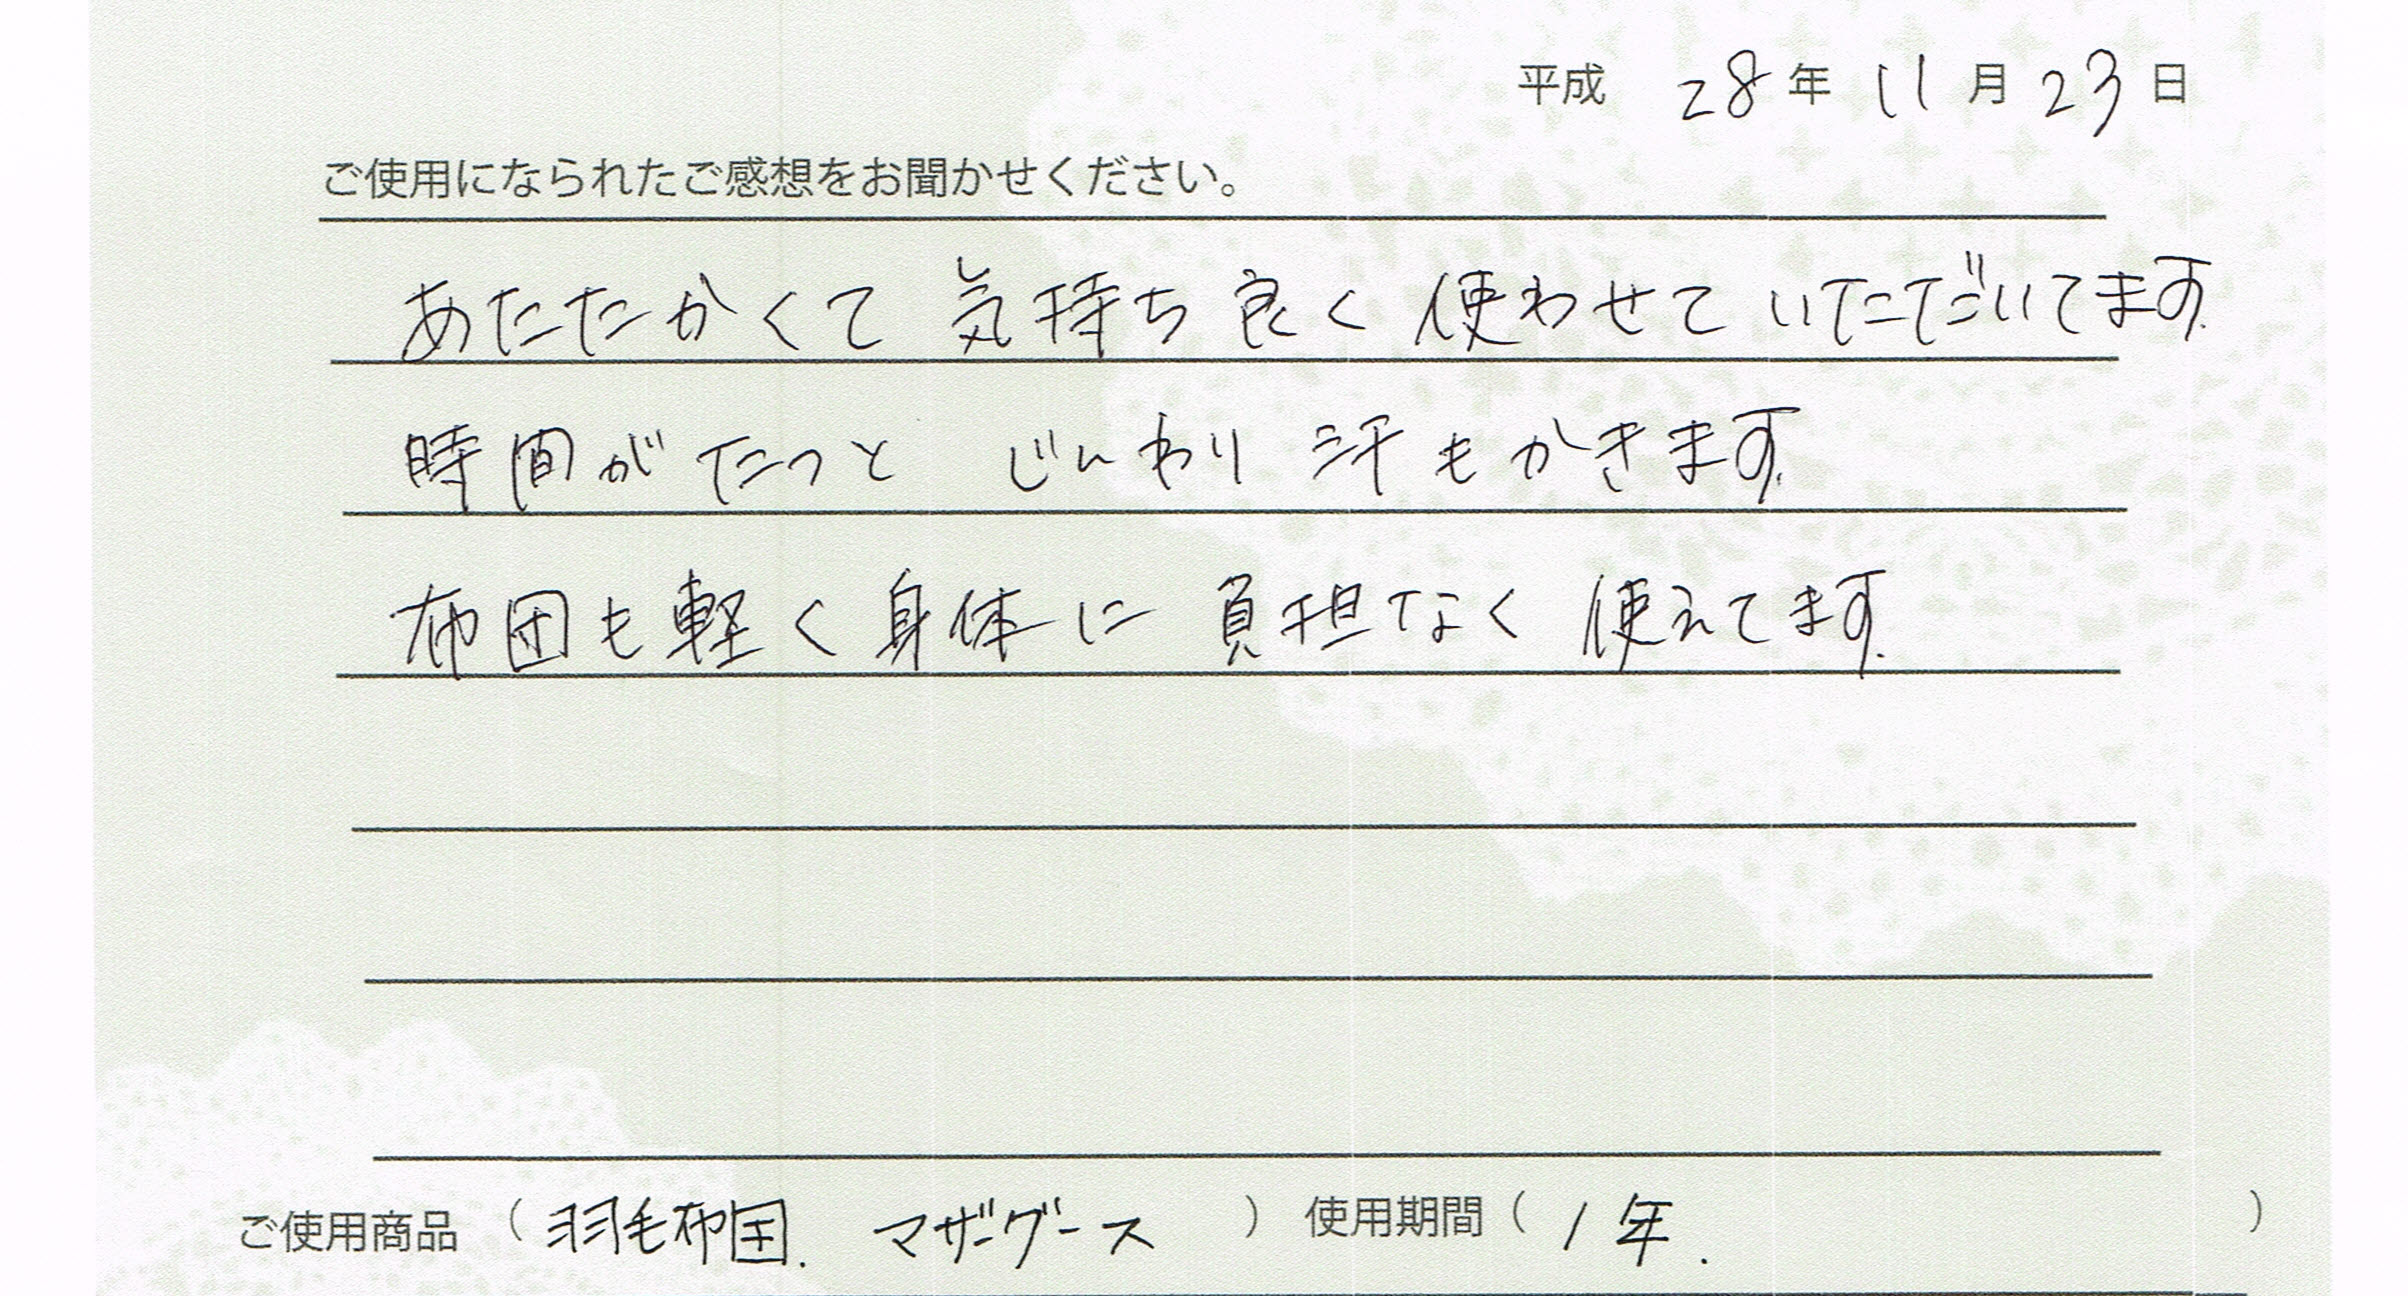 平成 28年 11月 23日
ご使用になられたご感想をお聞かせください。
あたたかくて 気持ち良く 使わせて いただいてます.
時間がたつと じんわり 汗もかきます.
布団も軽く 身体に 負担なく 使えてます.
ご使用商品 ( 羽毛布団. マザーグース ) 使用期間 ( 1年. )